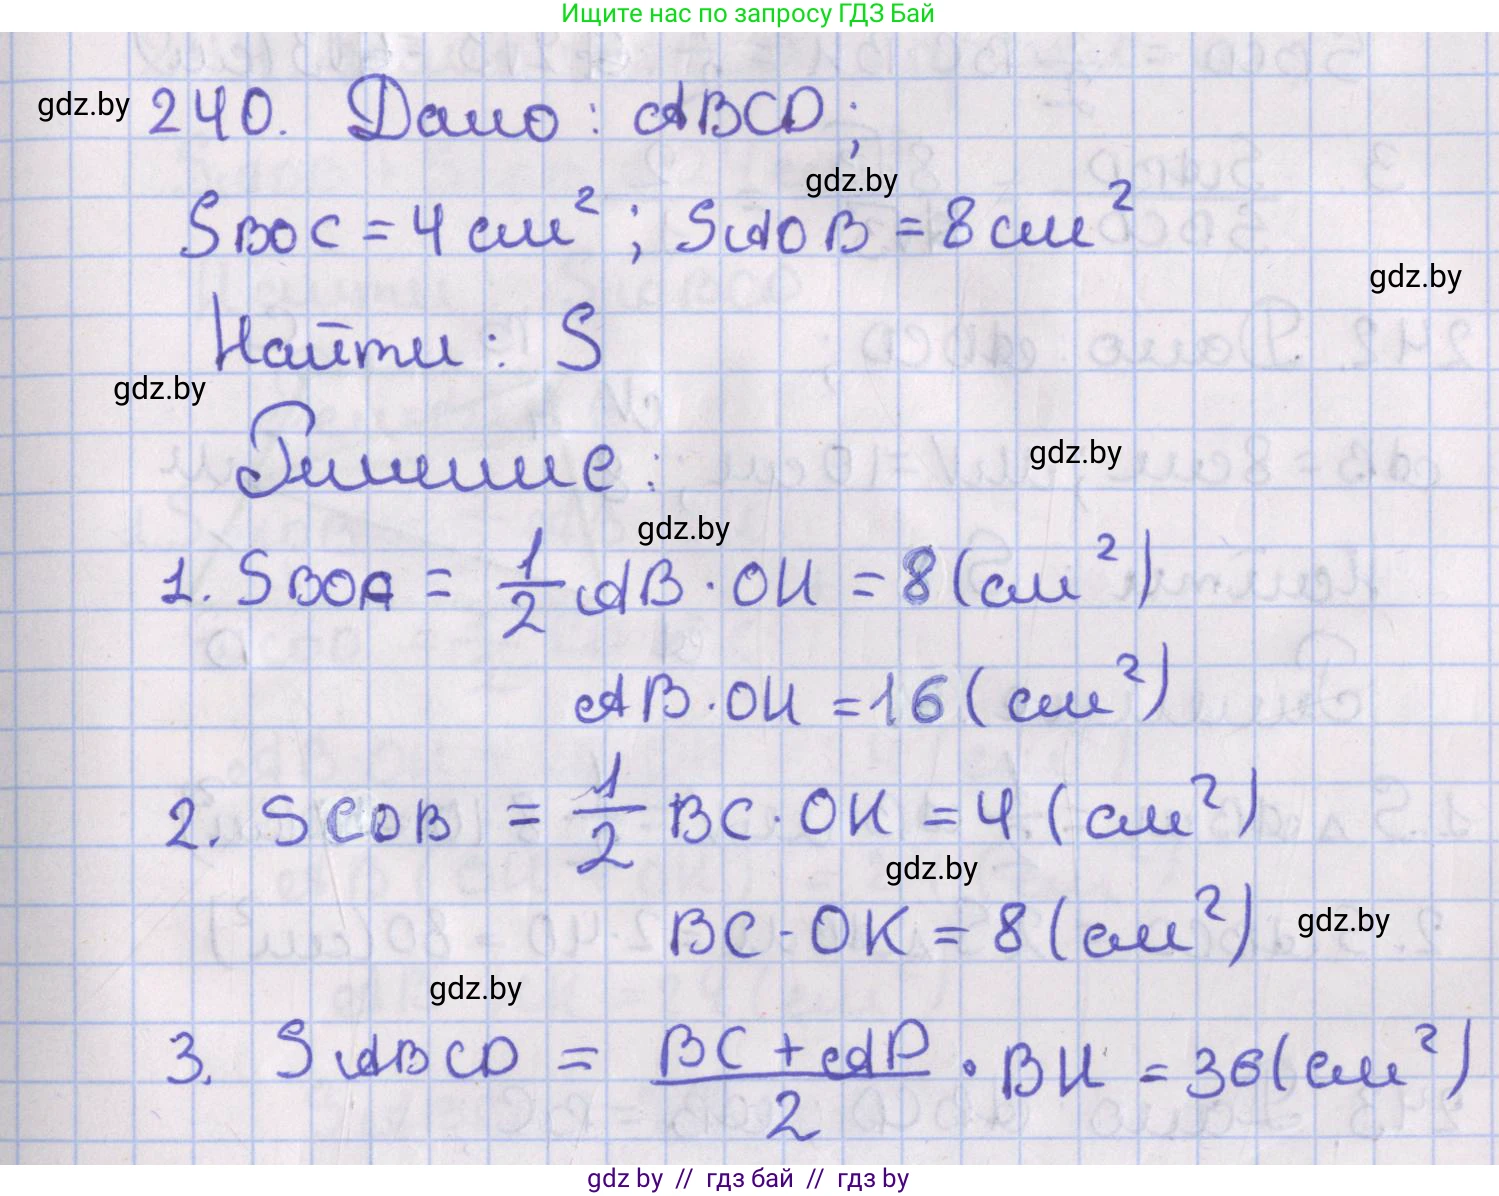 Ищите нас по запросу ГДЗ Бай
gdz.by 240. Дано: ABCD;
gdz.by
SBOC = 4 см²; SAOB = 8 см²
gdz.by
Найти: S
gdz.by
Решение:
gdz.by
gdz.by
1. SBOA = 1/2 AB · OH = 8 (см²)
AB · OH = 16 (см²)
2. SCOB = 1/2 BC · OK = 4 (см²)
gdz.by
BC · OK = 8 (см²)
gdz.by
gdz.by
3. SABCD = (BC + AD)/2 · BH = 36 (см²)
gdz.by // гдз бай // гдз by